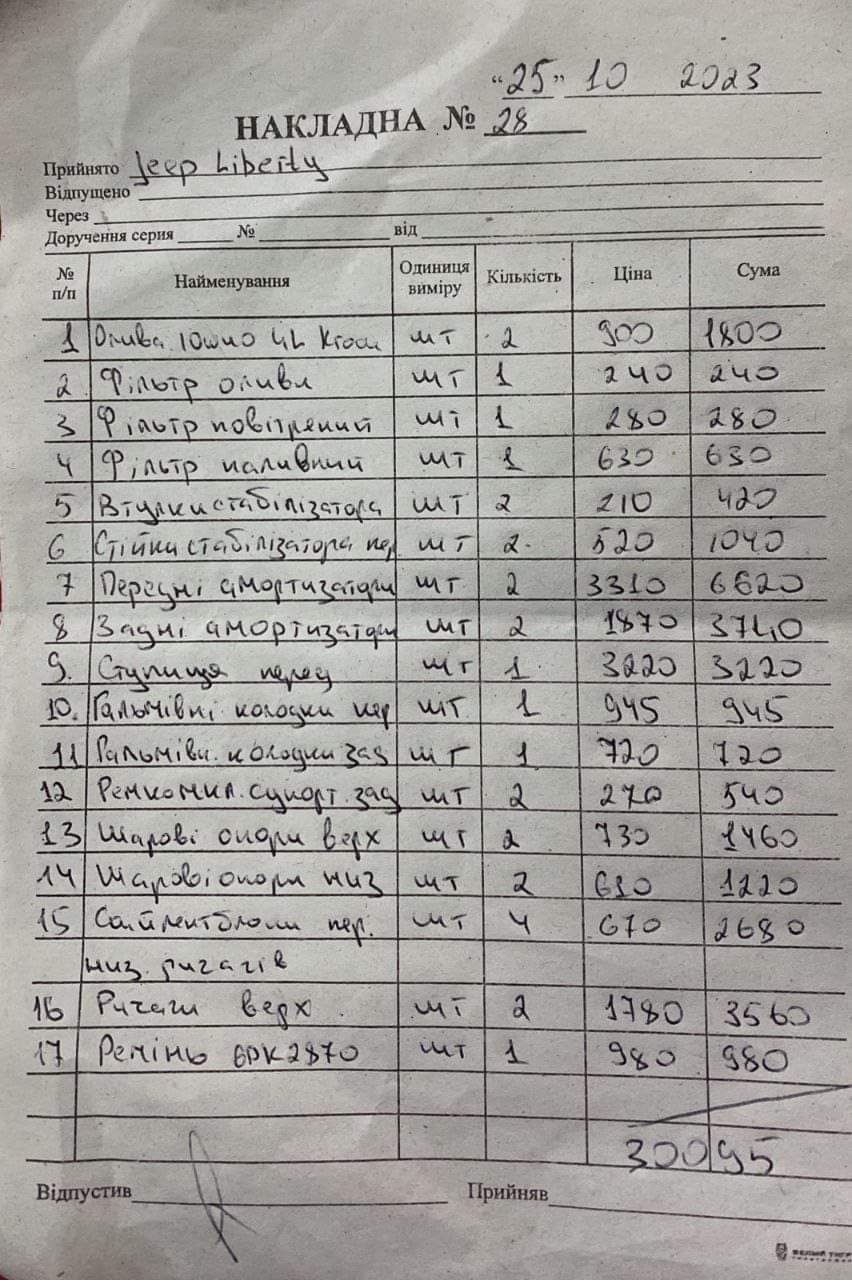 "25" 10 2023
НАКЛАДНА № 28
Прийнято Jeep Liberty
Відпущено
Через
Доручення серия № від
№ п/п Найменування Одиниця виміру Кількість Ціна Сума
1 Олива 10w40 4L шт 2 900 1800
2 Фільтр оливи шт 1 240 240
3 Фільтр повітряний шт 1 280 280
4 Фільтр паливний шт 1 630 630
5 Втулки стабілізатора шт 2 210 420
6 Стійки стабілізатора пер шт 2 520 1040
7 Передні амортизатори шт 2 3310 6620
8 Задні амортизатори шт 2 1870 3740
9. Ступиця перед шт 1 3220 3220
10. Гальмівні колодки пер шт 1 945 945
11 Гальмівн. колодки зад шт 1 720 720
12 Ремкомпл. супорт. зад шт 2 270 540
13 Шарові опори верх шт 2 730 1460
14 Шарові опори низ шт 2 610 1220
15 Сайлентблоки пер. шт 4 670 2680
низ. ричагів
16 Ричаги верх шт 2 1780 3560
17 Ремінь 6PK2870 шт 1 980 980
30095
Відпустив Прийняв
БЕЛЫЙ ТИГР